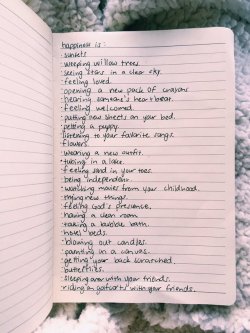 happiness is:
· sunsets
· weeping willow trees.
· seeing stars in a clear sky.
· feeling loved.
· opening a new pack of crayons
· hearing someone's heartbeat.
· feeling welcomed.
· putting new sheets on your bed.
· petting a puppy.
· listening to your favorite songs.
· flowers
· wearing a new outfit.
· tubing in a lake.
· feeling sand in your toes.
· being independent.
· watching movies from your childhood.
· trying new things.
· feeling God's presence.
· having a clean room
· taking a bubble bath.
· hotel beds.
· blowing out candles.
· painting on a canvas.
· getting your back scratched.
· butterflies.
· sleeping over with your friends.
· riding on golfcarts with your friends.